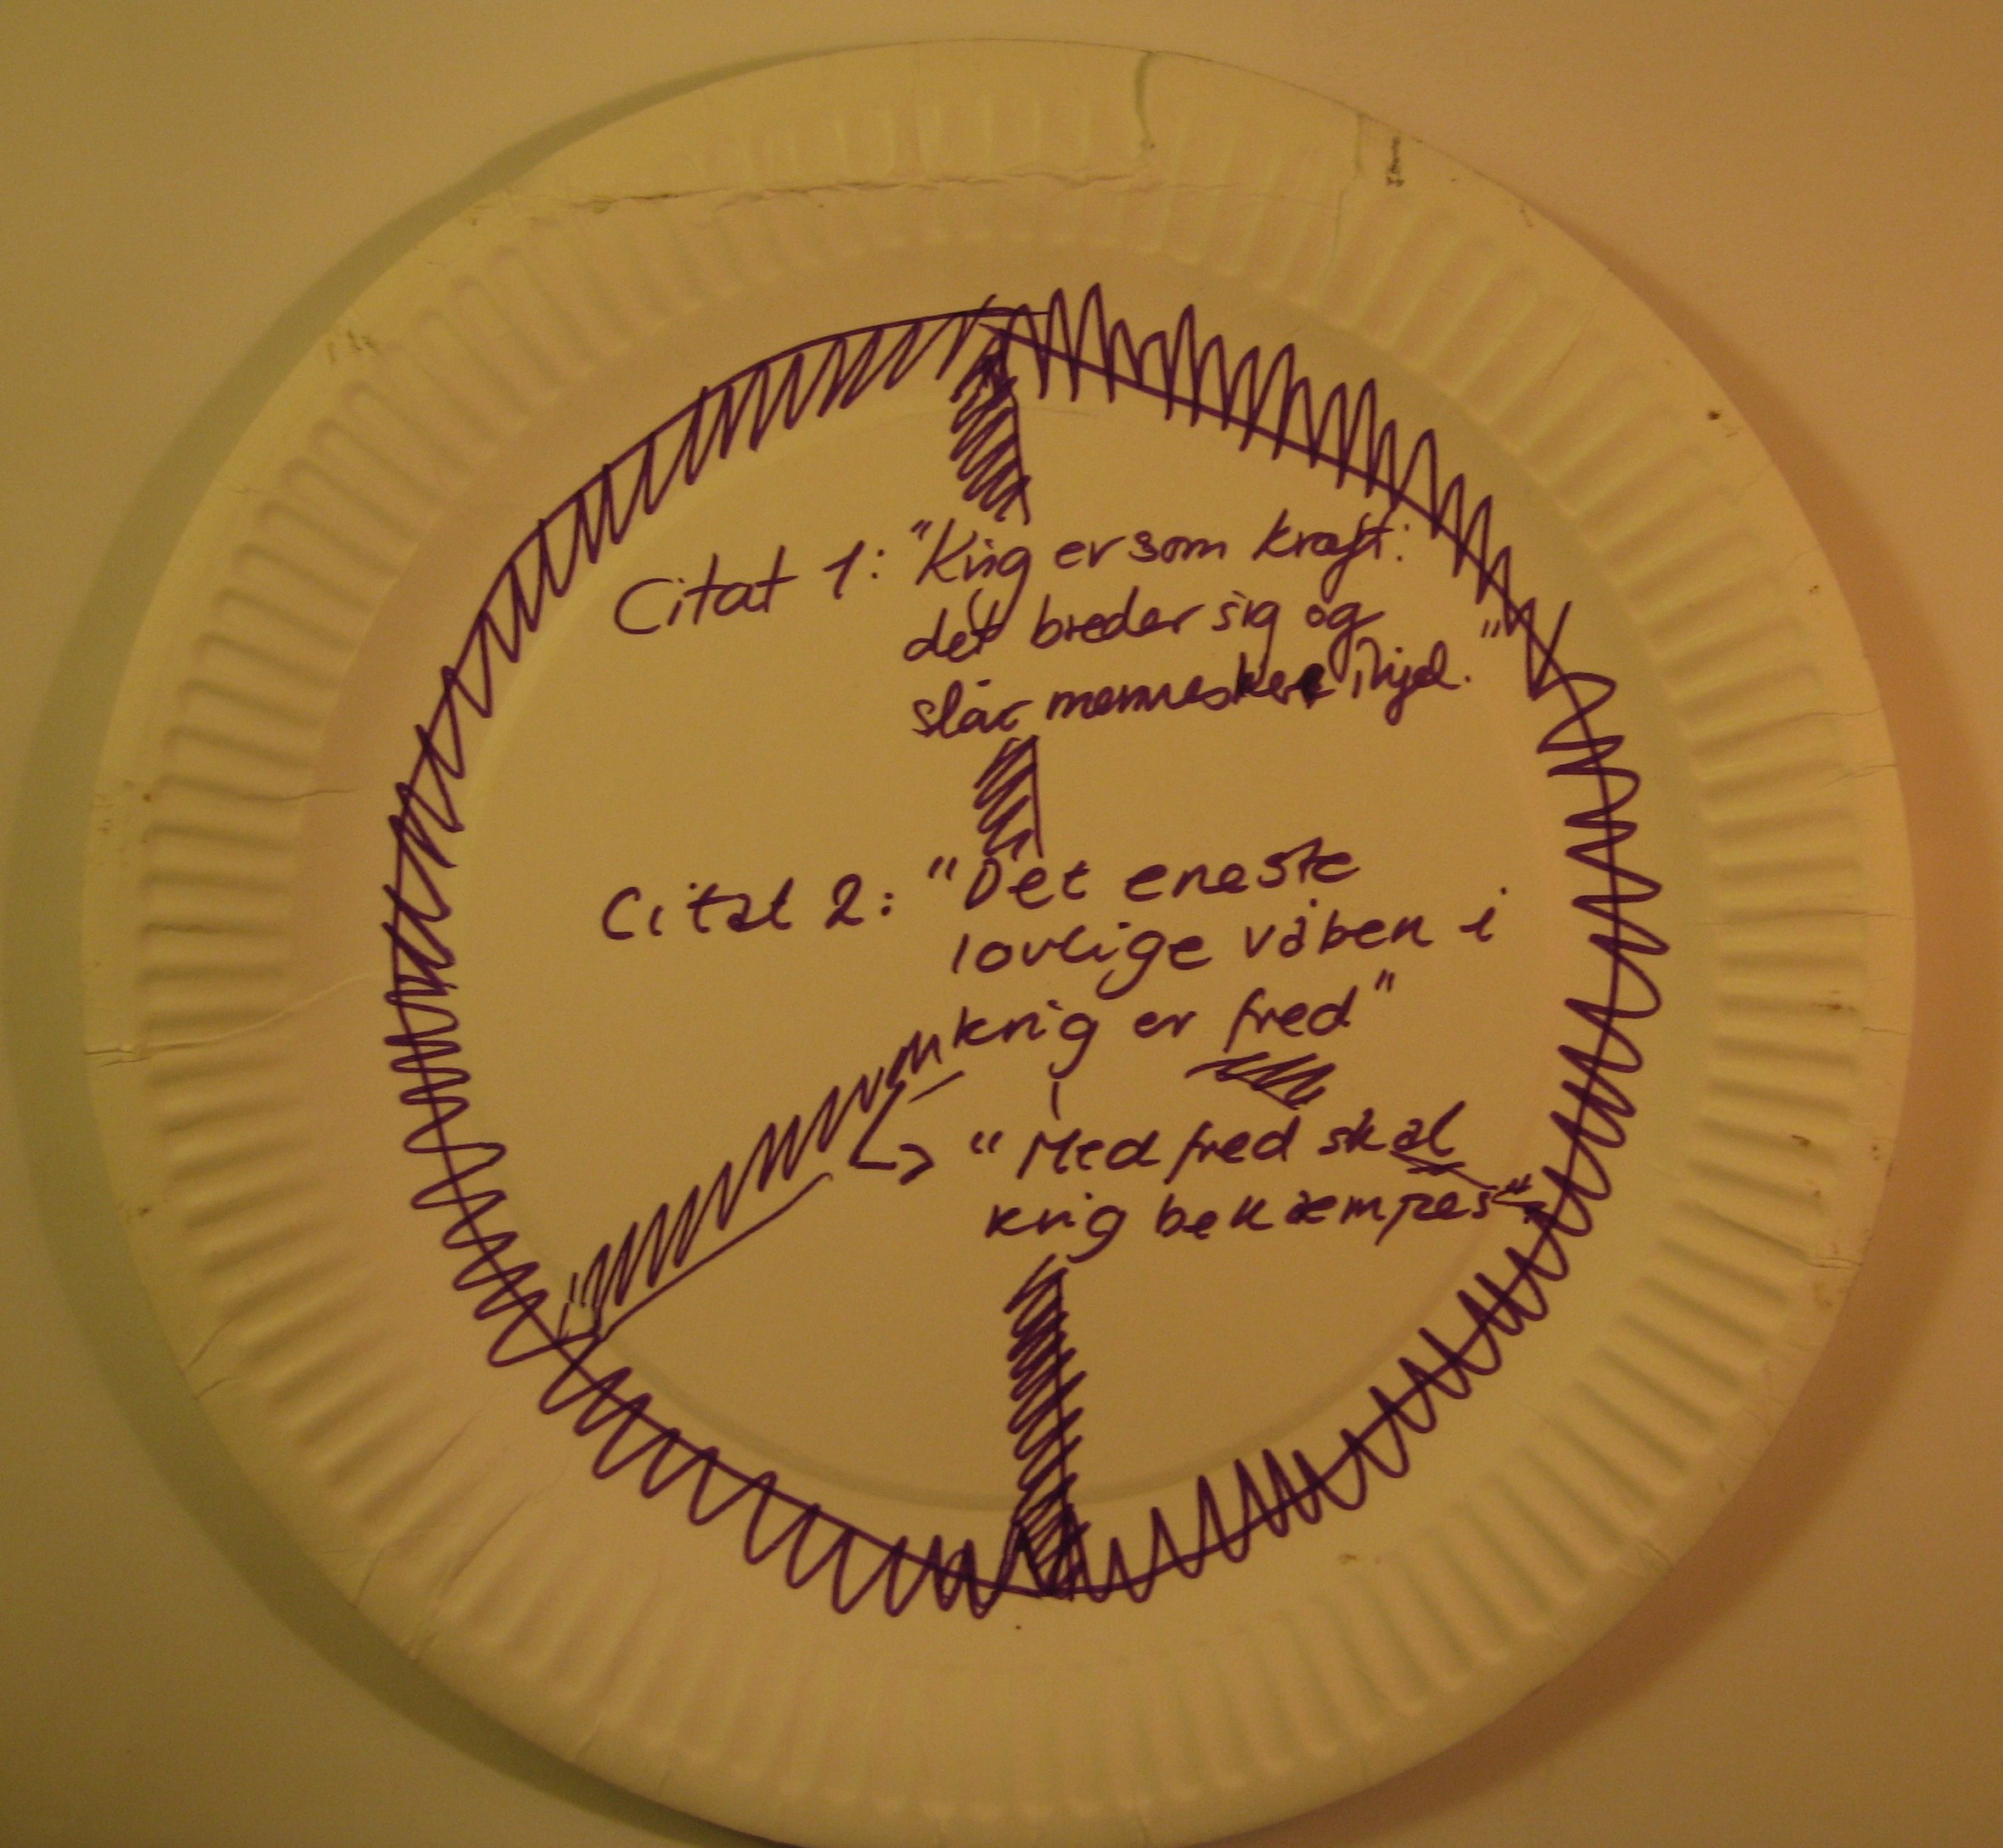 Citat 1: "Krig er som kræft:
det breder sig og
slår mennesker ihjel."
Citat 2: "Det eneste
lovlige våben i
krig er fred"
"Med fred skal
krig bekæmpes"